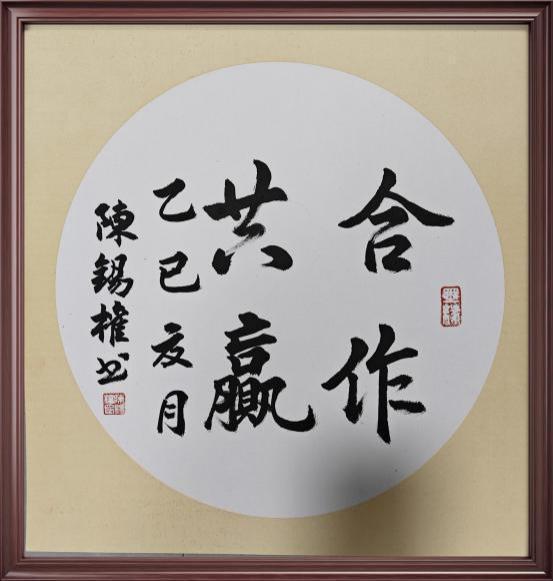 合作
共贏
乙巳夏月
陳錫權书